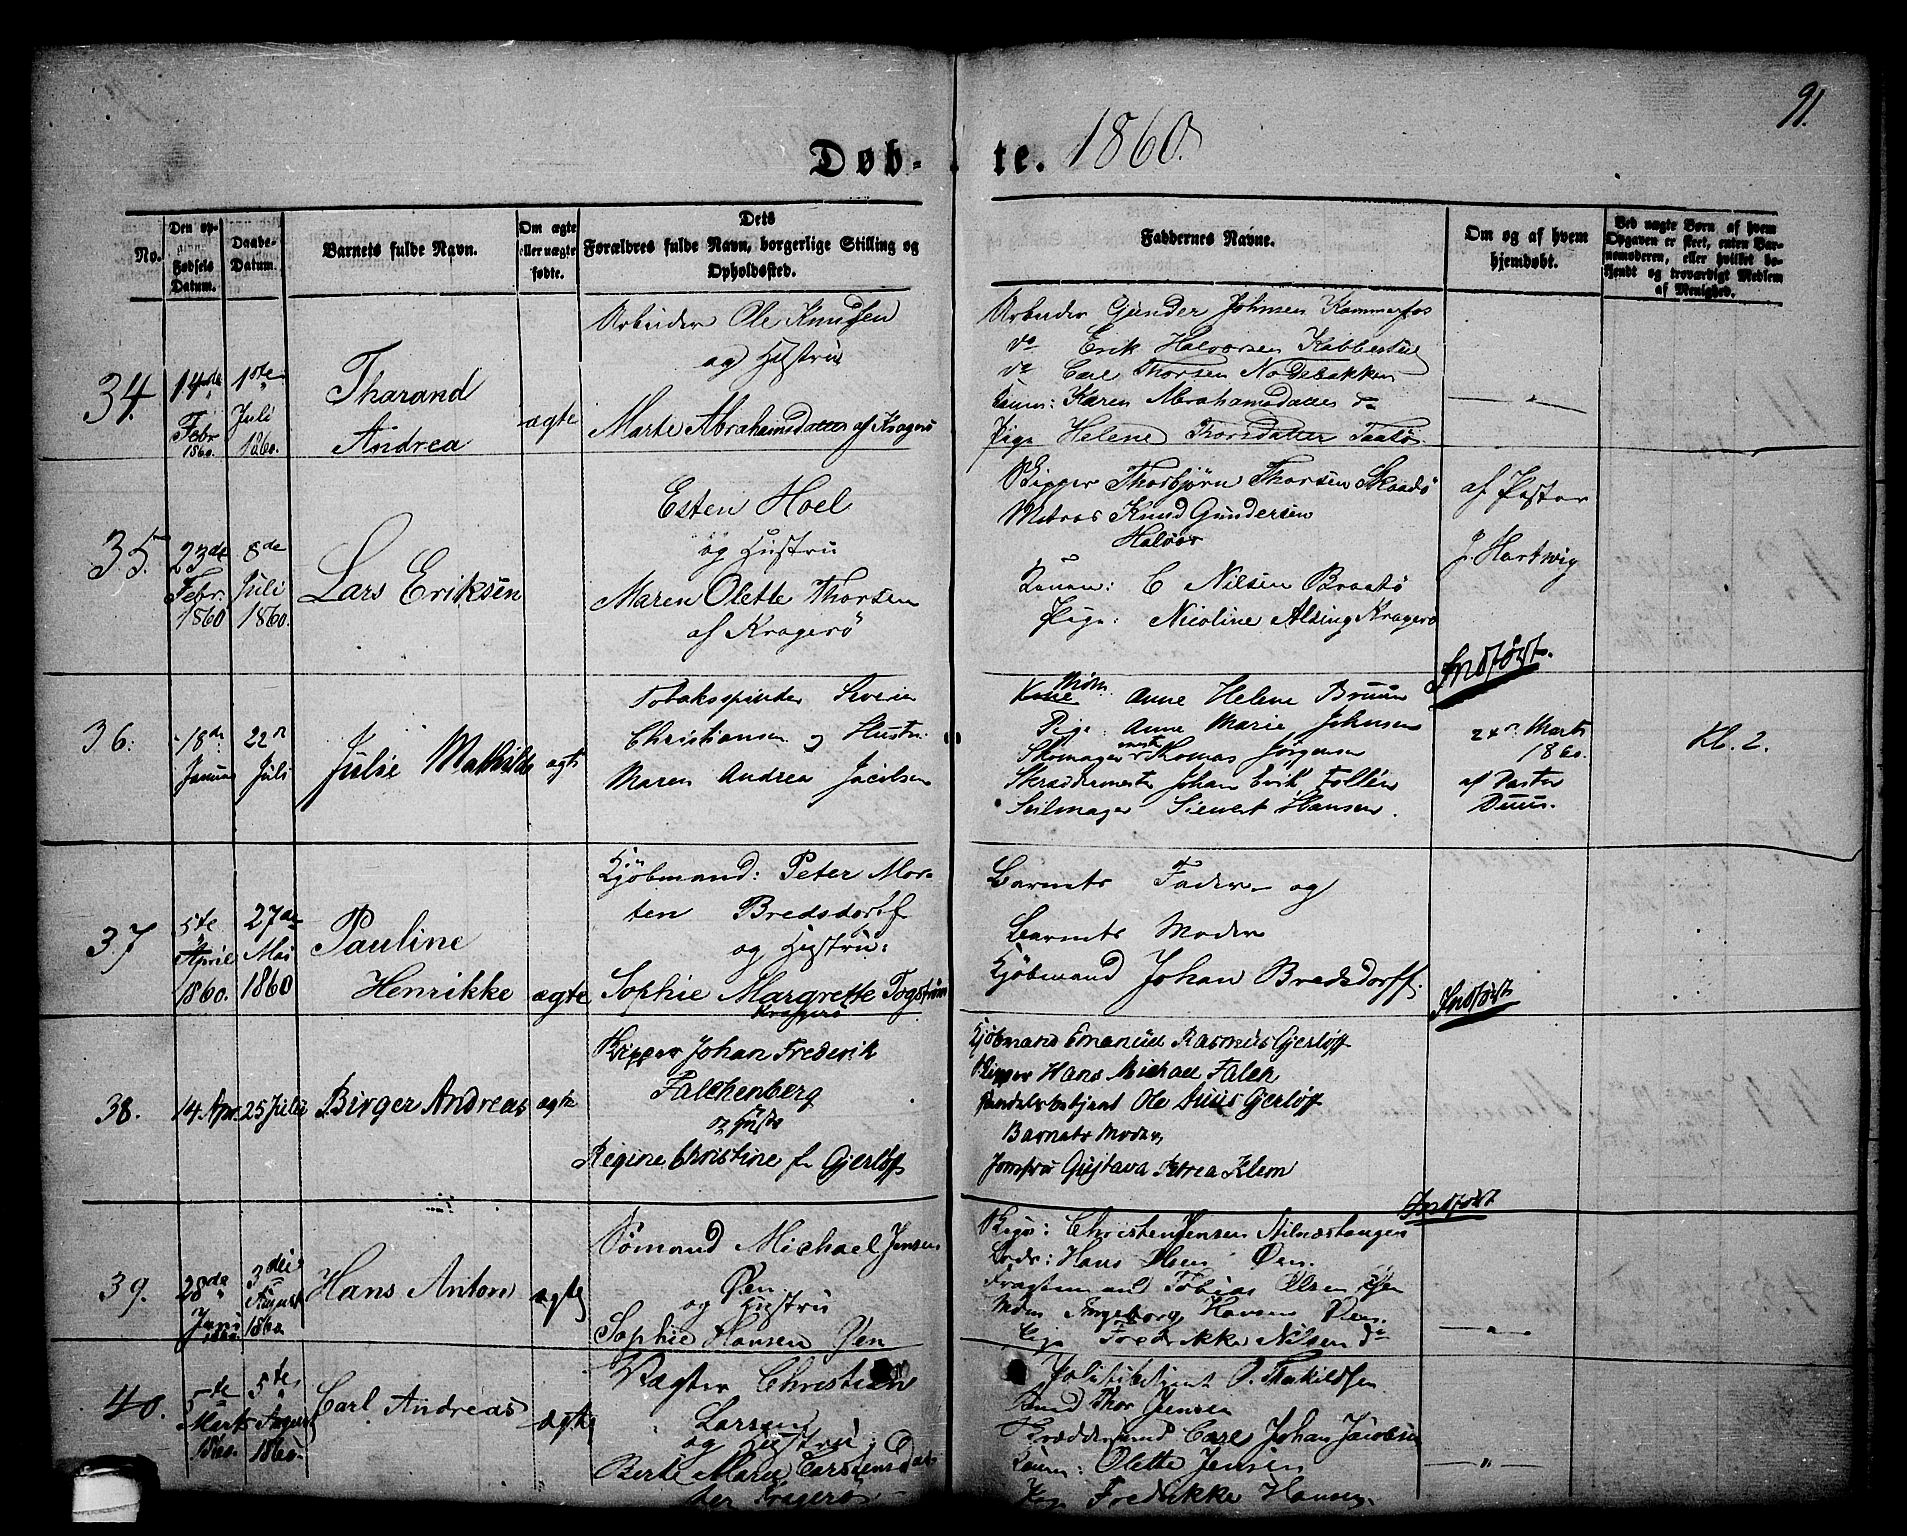 91.
Døb- te. 1860.
No.
Den op-
givne
Fødsels
Datum.
Daabs-
Datum.
Barnets fulde Navn.
Om ægte
eller uægte
fødte.
Dets
Forældres fulde Navn, borgerlige Stilling og
Opholdssted.
Faddernes Navne.
Om og af hvem
hjemdøbt.
Ved uægte Børn af hvem
Opgaven er skeet, enten Bar-
nemoderen, eller hvilket be-
kjendt og troværdigt Medlem
af Menighed.
34.
14de
Febr
1860.
1ste
Juli
1860.
Tharand
Andrea
ægte
Arbeider Ole Knudsen
og Hustru
Marte Abrahamsdatter af Kragerø
Arbeider Gunder Johnsen Kammerfos
do Erik Halvorsen Kabbestul
do Carl Thorsen
Konen: Karen Abrahamsdatter do
Pige Helene Thorsdatter Taatø
35.
23de
Febr.
1860
8de
Juli
1860.
Lars Eriksen
Esten Hoel
og Hustru
Maren Olette Thorsen
af Kragerø
Rigger Thorbjørn Thorsen Skaadø
Matros Knud Gundersen
Halvor
Konen: C Nilsen Braatø
Pige: Nicoline Alsing Kragerø
af Pastor
J Hartwig
Indført.
36.
18de
Januar
22n
Juli
Julie Mathilde
ægte
Tobaksspinder Sverin
Christiansen og Hustru
Maren Andrea Jacobsen
Mdm Anne Helene Bruun
Pige: Anne Marie Johnsen
Skomagermester Thomas Jørgensen
Skræddermester Johan Erik Follin
Seilmager Sievert Hansen.
24n Marts
1860.
af Pastor
Duus.
Kl. 2.
37
5te
April
1860.
27de
Mai
1860
Pauline
Henrikke
ægte
Kjøbmand: Peter Mor-
ten Bredsdorff
og Hustru:
Sophie Margrette Togstrøm
Kragerø
Barnets Fader og
Barnets Moder
Kjøbmand Johan Bredsdorff.
Indført
38.
14. Apr.
25 Juli
Birger Andreas
ægte
Rigger Johan Frederik
Falchenberg
og Hustr
Regine Christine f. Gjerløff
Kjøbmand Emanuel Rasmus Gjerløff
Rigger Hans Michael Falch
Handelsbetjent Ole Duus Gjerløff
Barnets Moder,
Jomfru Gustava Petrea Klem
Indført
39.
28de
Juni
1860
3die
August
1860
Hans Anton
ægte
Sømand Michael Jensen
Øen
og Hustru
Sophie Hansen Øen
Rigg: Christen Jensen
Lods: Hans Øen.
Fragtemand Tobias Olsen Øen
Mdm Ingeborg Hansen Øen
Pige Fredrikke Nilsen do
40.
5te
Marts
1860.
5te
August
1860.
Carl Andreas
ægte
Vægter Christian
Larsen
og Hustru:
Berte Maria Carstensdat-
ter Kragerø
Politibetjent O. Therkildsen
Thor Jensen
Skræddersvend Carl Johan Jacobsen
Konen: Olette Jensen
Pige Fredrikke Hansen